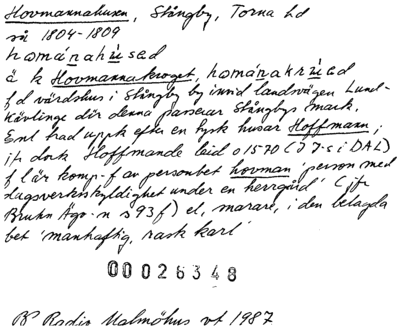 Hovmannahusen, Stångby, Torna hd
su 1804-1809
hománahùsad
å k Hovmannakroget, hománakrùad
f d värdshus i Stångby by invid landsvägen Lund-
Kävlinge där denna passerar Stångbys mark.
Enl trad uppk efter en tysk husar Hoffmann,
jfr dock Hoffmande leid o 1570 (JJ-s i DAL)
f l är komp-f av personbet hovman 'person med
dagsverksskyldighet under en herrgård' (jfr
Bruhn Ägo-n s 93 f) el, snarare, i den belagda
bet 'manhaftig, rask karl'
00026348
BP Radio Malmöhus vt 1987